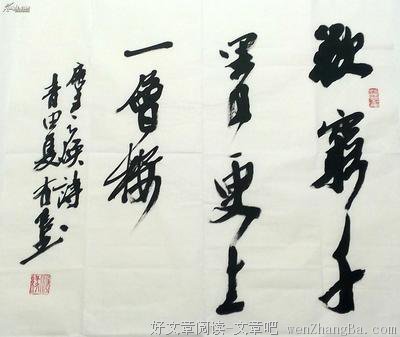 欲窮千
里目更上
一曾樓
唐王之渙詩
青田夏
好文章阅读-文章吧 wenZhangBa.com